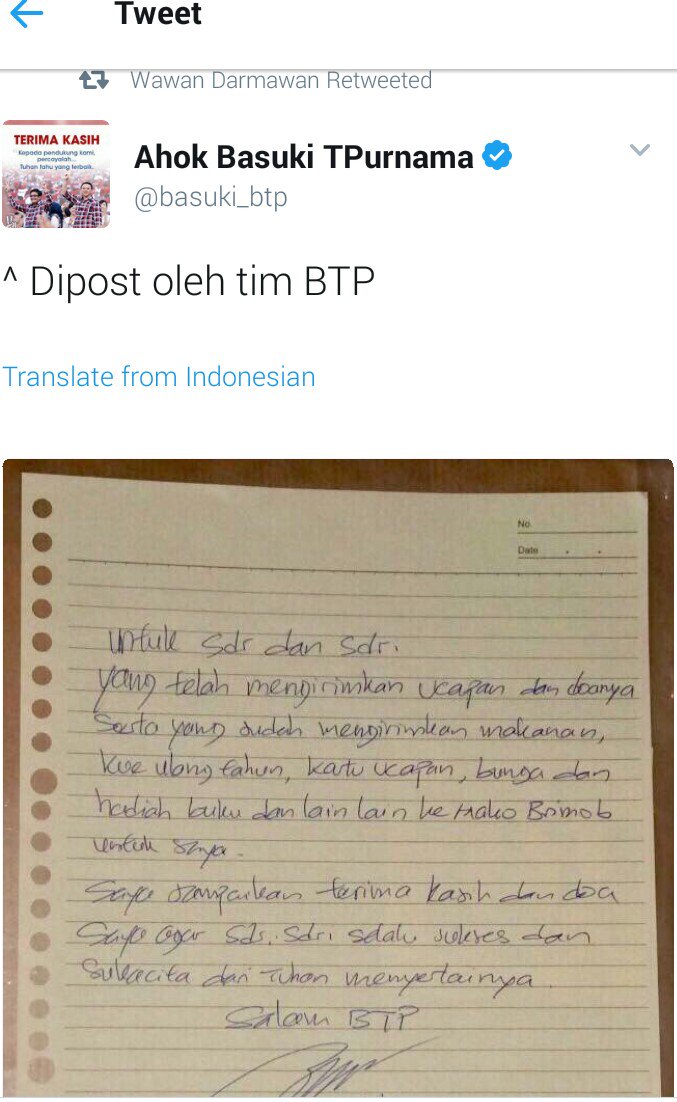 Tweet
Wawan Darmawan Retweeted
TERIMA KASIH
Kepada pendukung kami,
percayalah...
Tuhan tahu yang terbaik.
Ahok Basuki TPurnama
@basuki_btp
^ Dipost oleh tim BTP
Translate from Indonesian
No.
Date . .
untuk sdr dan sdr.
yang telah mengirimkan ucapan dan doanya
Serta yang sudah mengirimkan makanan,
kue ulang tahun, kartu ucapan, bunga dan
hadiah buku dan lain lain ke Mako Brimob
untuk saya.
Saya sampaikan terima kasih dan doa
Saya agar sdr. sdri selalu sukses dan
Sukacita dari Tuhan menyertainya.
Salam BTP